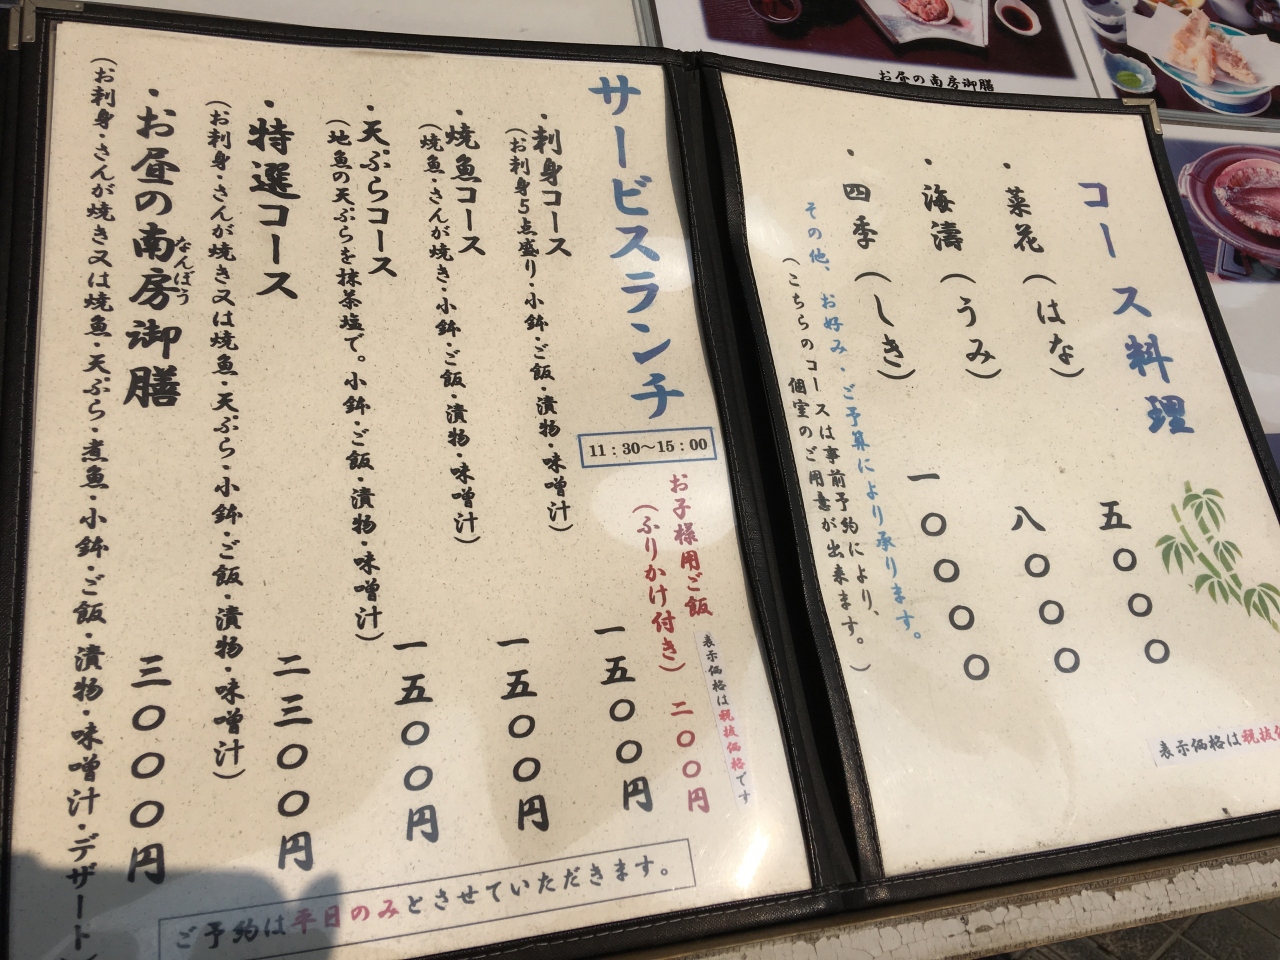 お昼の南房御膳
コース料理
・菜花(はな) 五〇〇〇
・海濤(うみ) 八〇〇〇
・四季(しき) 一〇〇〇〇
その他、お好み・ご予算により承ります。
(こちらのコースは事前予約により、
個室のご用意が出来ます。)
表示価格は税抜価
サービスランチ
11:30～15:00
お子様用ご飯
(ふりかけ付き) 二〇〇円
表示価格は税抜価格です
・刺身コース 一五〇〇円
(お刺身5点盛り・小鉢・ご飯・漬物・味噌汁)
・焼魚コース 一五〇〇円
(焼魚・さんが焼き・小鉢・ご飯・漬物・味噌汁)
・天ぷらコース 一五〇〇円
(地魚の天ぷらを抹茶塩で。小鉢・ご飯・漬物・味噌汁)
・特選コース 二三〇〇円
(お刺身・さんが焼き又は焼魚・天ぷら・小鉢・ご飯・漬物・味噌汁)
・お昼の南房御膳 三〇〇〇円
なんぼう
(お刺身・さんが焼き又は焼魚・天ぷら・煮魚・小鉢・ご飯・漬物・味噌汁・デザート)
ご予約は平日のみとさせていただきます。